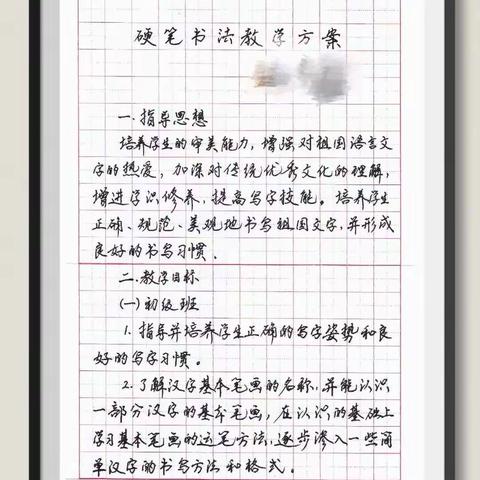 硬笔书法教学方案
一.指导思想
培养学生的审美能力,增强对祖国语言文
字的热爱,加深对传统优秀文化的理解,
增进学识修养,提高写字技能。培养学生
正确、规范、美观地书写祖国文字,并形成
良好的书写习惯。
二.教学目标
(一)初级班
1.指导并培养学生正确的写字姿势和良
好的写字习惯。
2.了解汉字基本笔画的名称,并能认识
一部分汉字的基本笔画,在认识的基础上
学习基本笔画的运笔方法,逐步渗入一些简
单汉字的书写方法和格式。